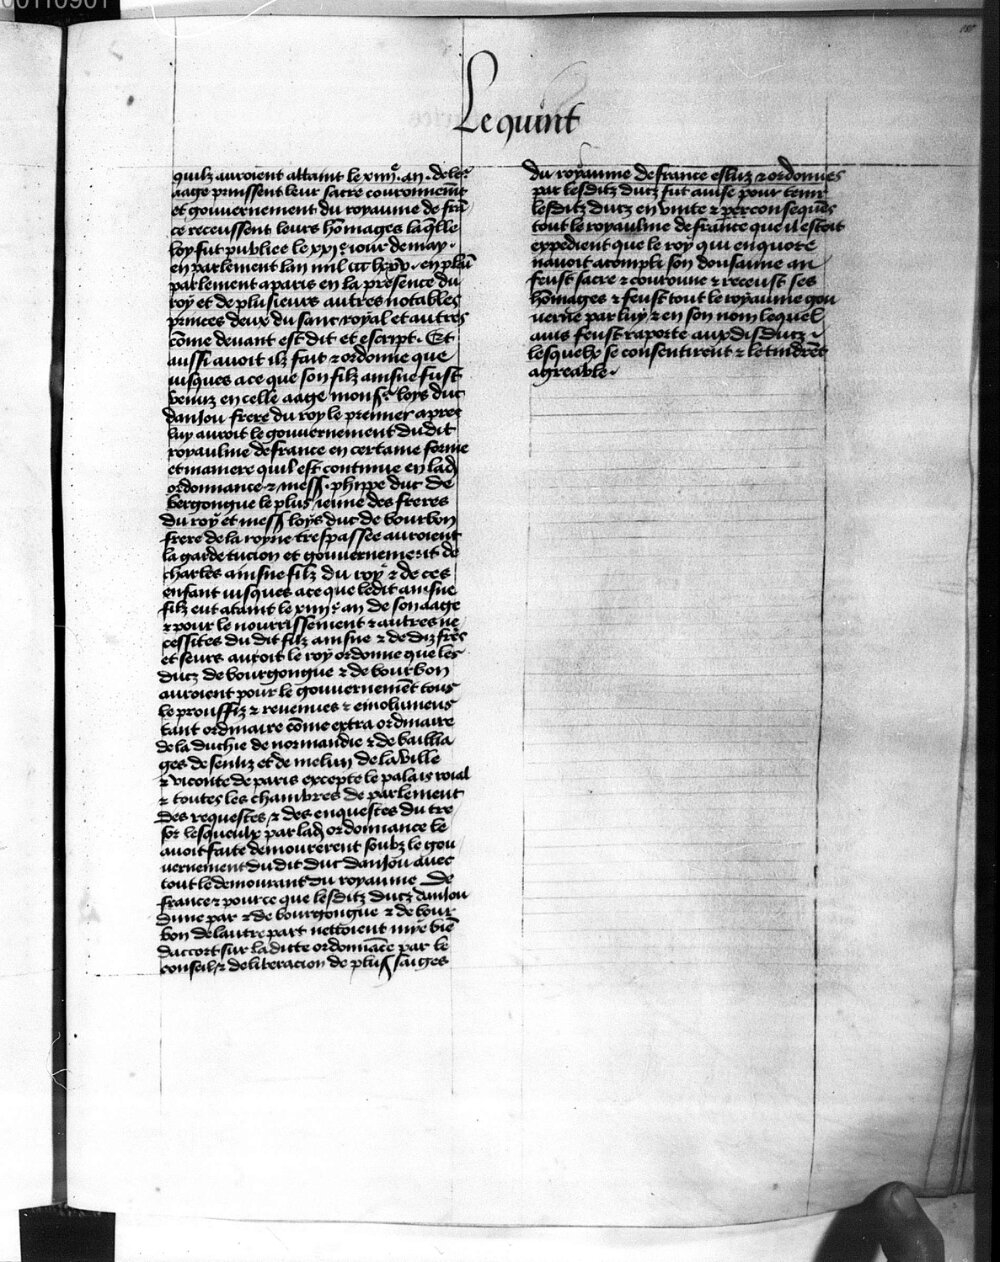 Le quint
quilz auroient attaint le xiiije. an. de leur
aage prinssent leur sacre couronnemt̃
et gouvernement du royaume de frã
ce receussent leurs hõmages laq̃lle
loy fut publiee le xxje iour de may.
en parlement lan mil ccc lxxv. en plaĩ
parlement a paris en la presence du
roy et de plusieurs autres notables
princes deux du sanc royal et autres
cõme devant est dit et escript. Et
aussi avoit ilz fait ⁊ ordonne que
iusques a ce que son filz ainsne fust
venuz en celle aage monsr loys duc
danjou frere du roy le premier apres
luy auroit le gouvernement du dit
royaulme de france en certaine forme
et maniere quil est continue en lad
ordonnance ⁊ mess. phippe duc de
bergongne le plus ieune des freres
du roy et mess loys duc de bourbon
frere de la royne trespassee auroient
la garde tucion et gouvernement de
charles ainsne filz du roy ⁊ de ces
enfant iusques a ce que ledit ainsne
filz eut ataint le xiiije an de son aage
⁊ pour le nourrissement ⁊ autres ne
cessites du dit filz ainsne ⁊ de diz frẽs
et seurs auroit le roy ordonne que les
ducz de bourgongne ⁊ de bourbon
auroient pour le gouvernemẽt tous
le prouffiz ⁊ revenues ⁊ emolumens
tant ordinaire cõme extra ordinaire
de la duchie de normandie ⁊ de baillia
ges de senliz et de melun de la ville
⁊ viconte de paris excepte le palais roial
⁊ toutes les chambres de parlement
des requestes ⁊ des enquestes du tre
sor lesqueulx par lad ordonnance le
avoit faite demourerent soubz le gou
vernement du dit duc danjou avec
tout le demourant du royaume De
france ⁊ pource que lesditz ducz danjou
dune par ⁊ de bourgongne ⁊ de bour
bon de lautre part nestoient mye biẽ
daccort sur la ditte ordonnãce par le
conseil ⁊ deliberacion de plus saiges
du royaume de france esluz ⁊ ordonnes
par lesditz ducz fut avise pour tenir
lesditz ducz en unite ⁊ per consequẽs
tout le royaulme de france que il estoit
expedient que le roy qui enquore
navoit acompli son dousaime an
feust sacre ⁊ couronne ⁊ receust ses
hõmages ⁊ feust tout le royaume gou
verne par luy ⁊ en son nom lequel
avis feust raporte aux dis ducz.
lesquelx se consentirent ⁊ le tindrẽt
agreable.